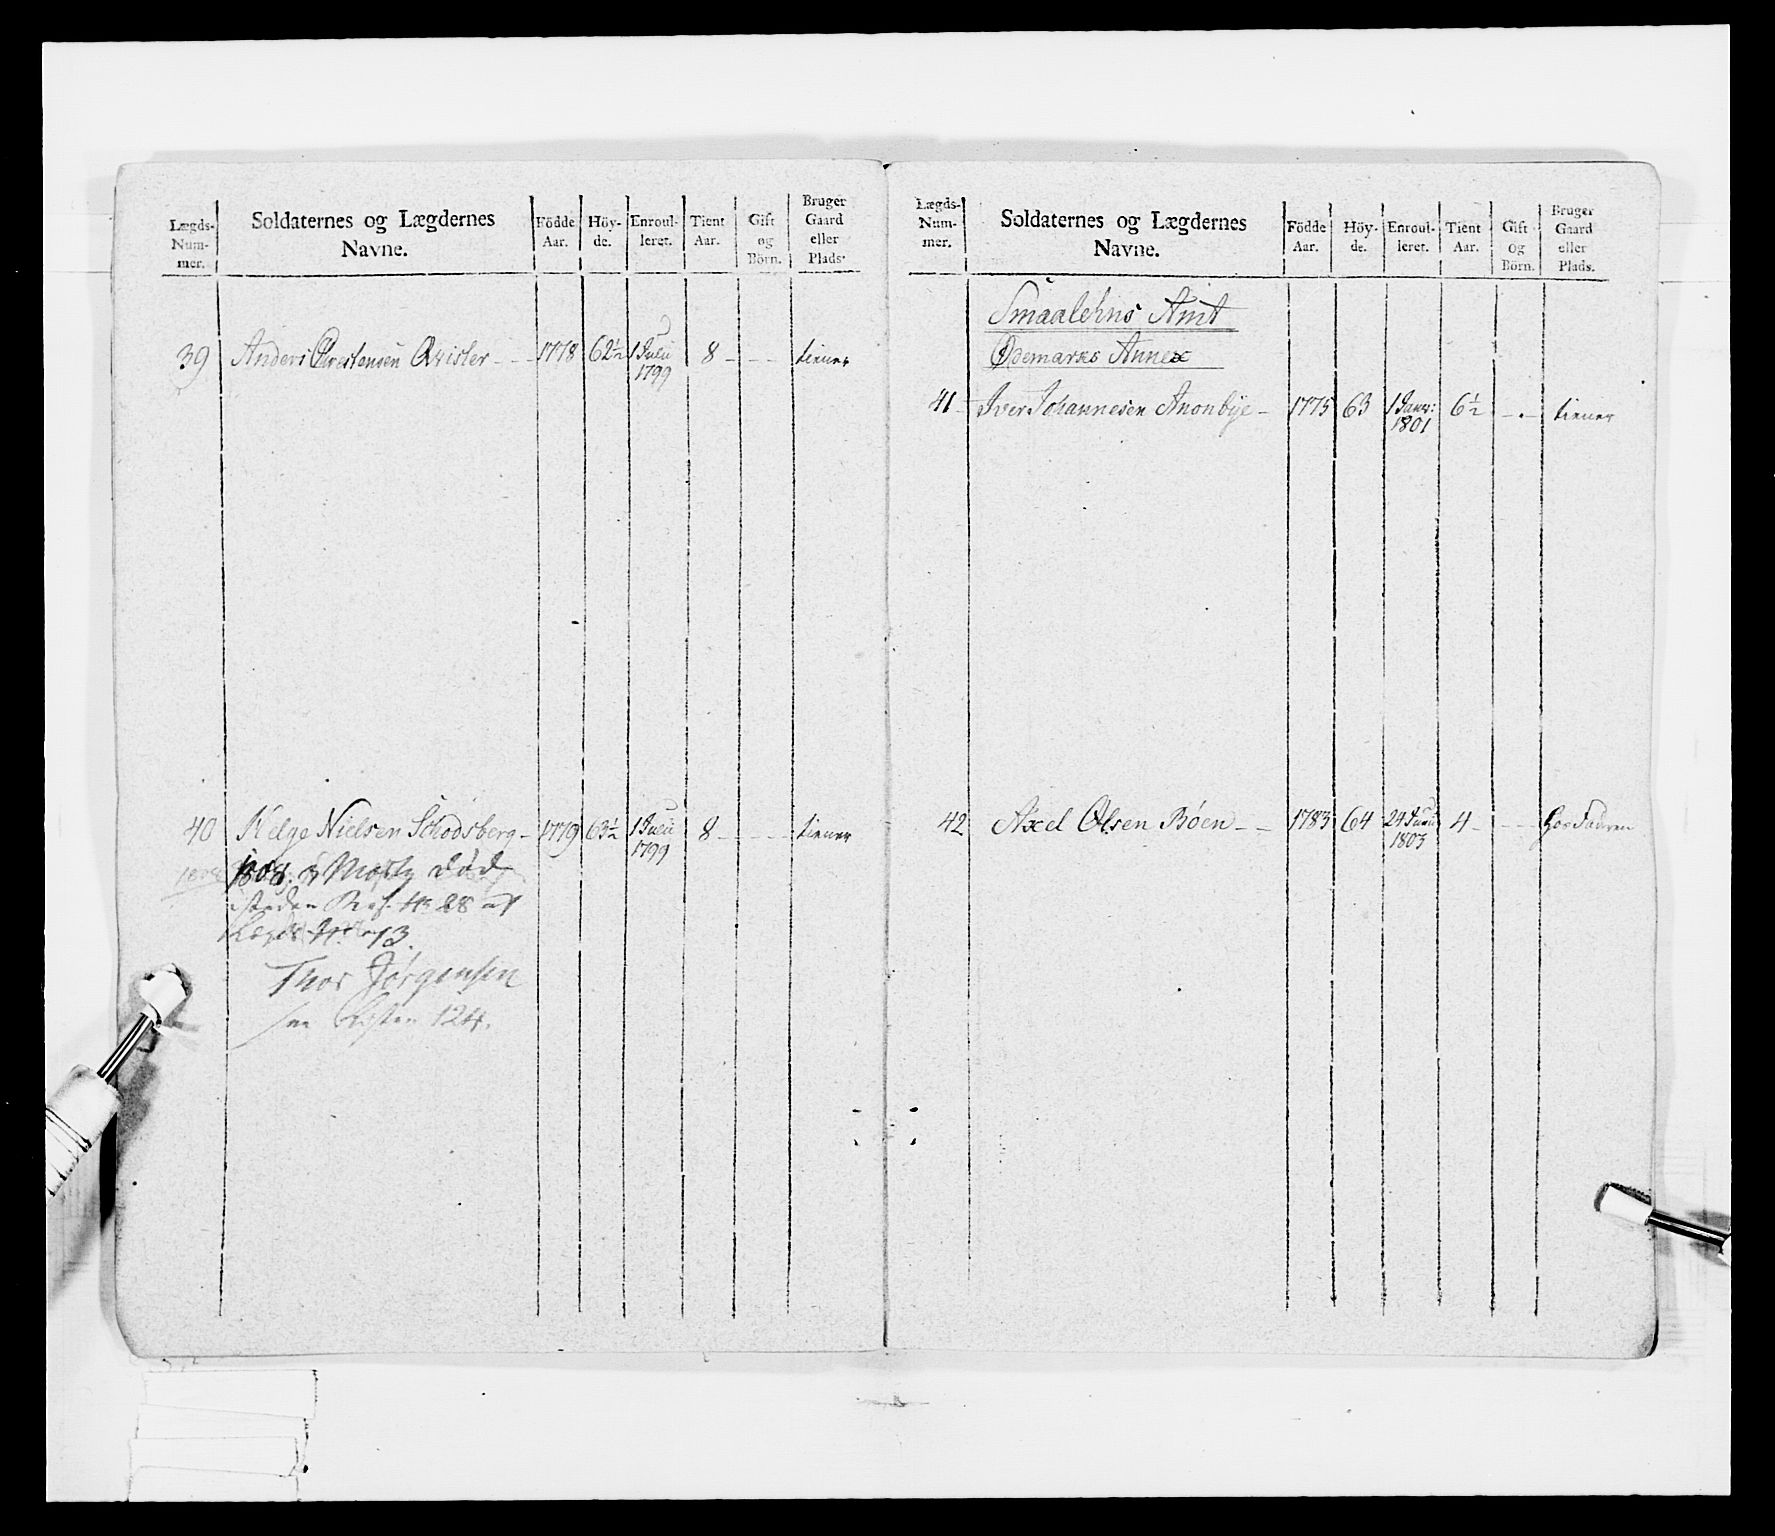 Lægds-Num-mer. Soldaternes og Lægdernes Navne. Födde Aar. Höy-de. Enroul-leret. Tient Aar. Gift og Börn. Bruger Gaard eller Plads.
39 Anders Chrestensen Qvisler - - 1778 62½ 1 Julii 1799 8 - - - tiener
40 Helge Nielsen Schodsberg - 1779 63½ 1 Julii 1799 8 - - - tiener
1808 död
isteden No 28 af
Lægd No 13.
Thor Jörgensen
124.
Lægds-Num-mer. Soldaternes og Lægdernes Navne. Födde Aar. Höy-de. Enroul-leret. Tient Aar. Gift og Börn. Bruger Gaard eller Plads.
Smaalehns Amt
Ödemarks Annex
41 - Iver Johannesen Anonbye - 1775 63 1 Janv: 1801 6½ - - tiener
42 Axel Olsen Böen - - 1783 64 24 Junii 1803 4 - - - hos Fadren